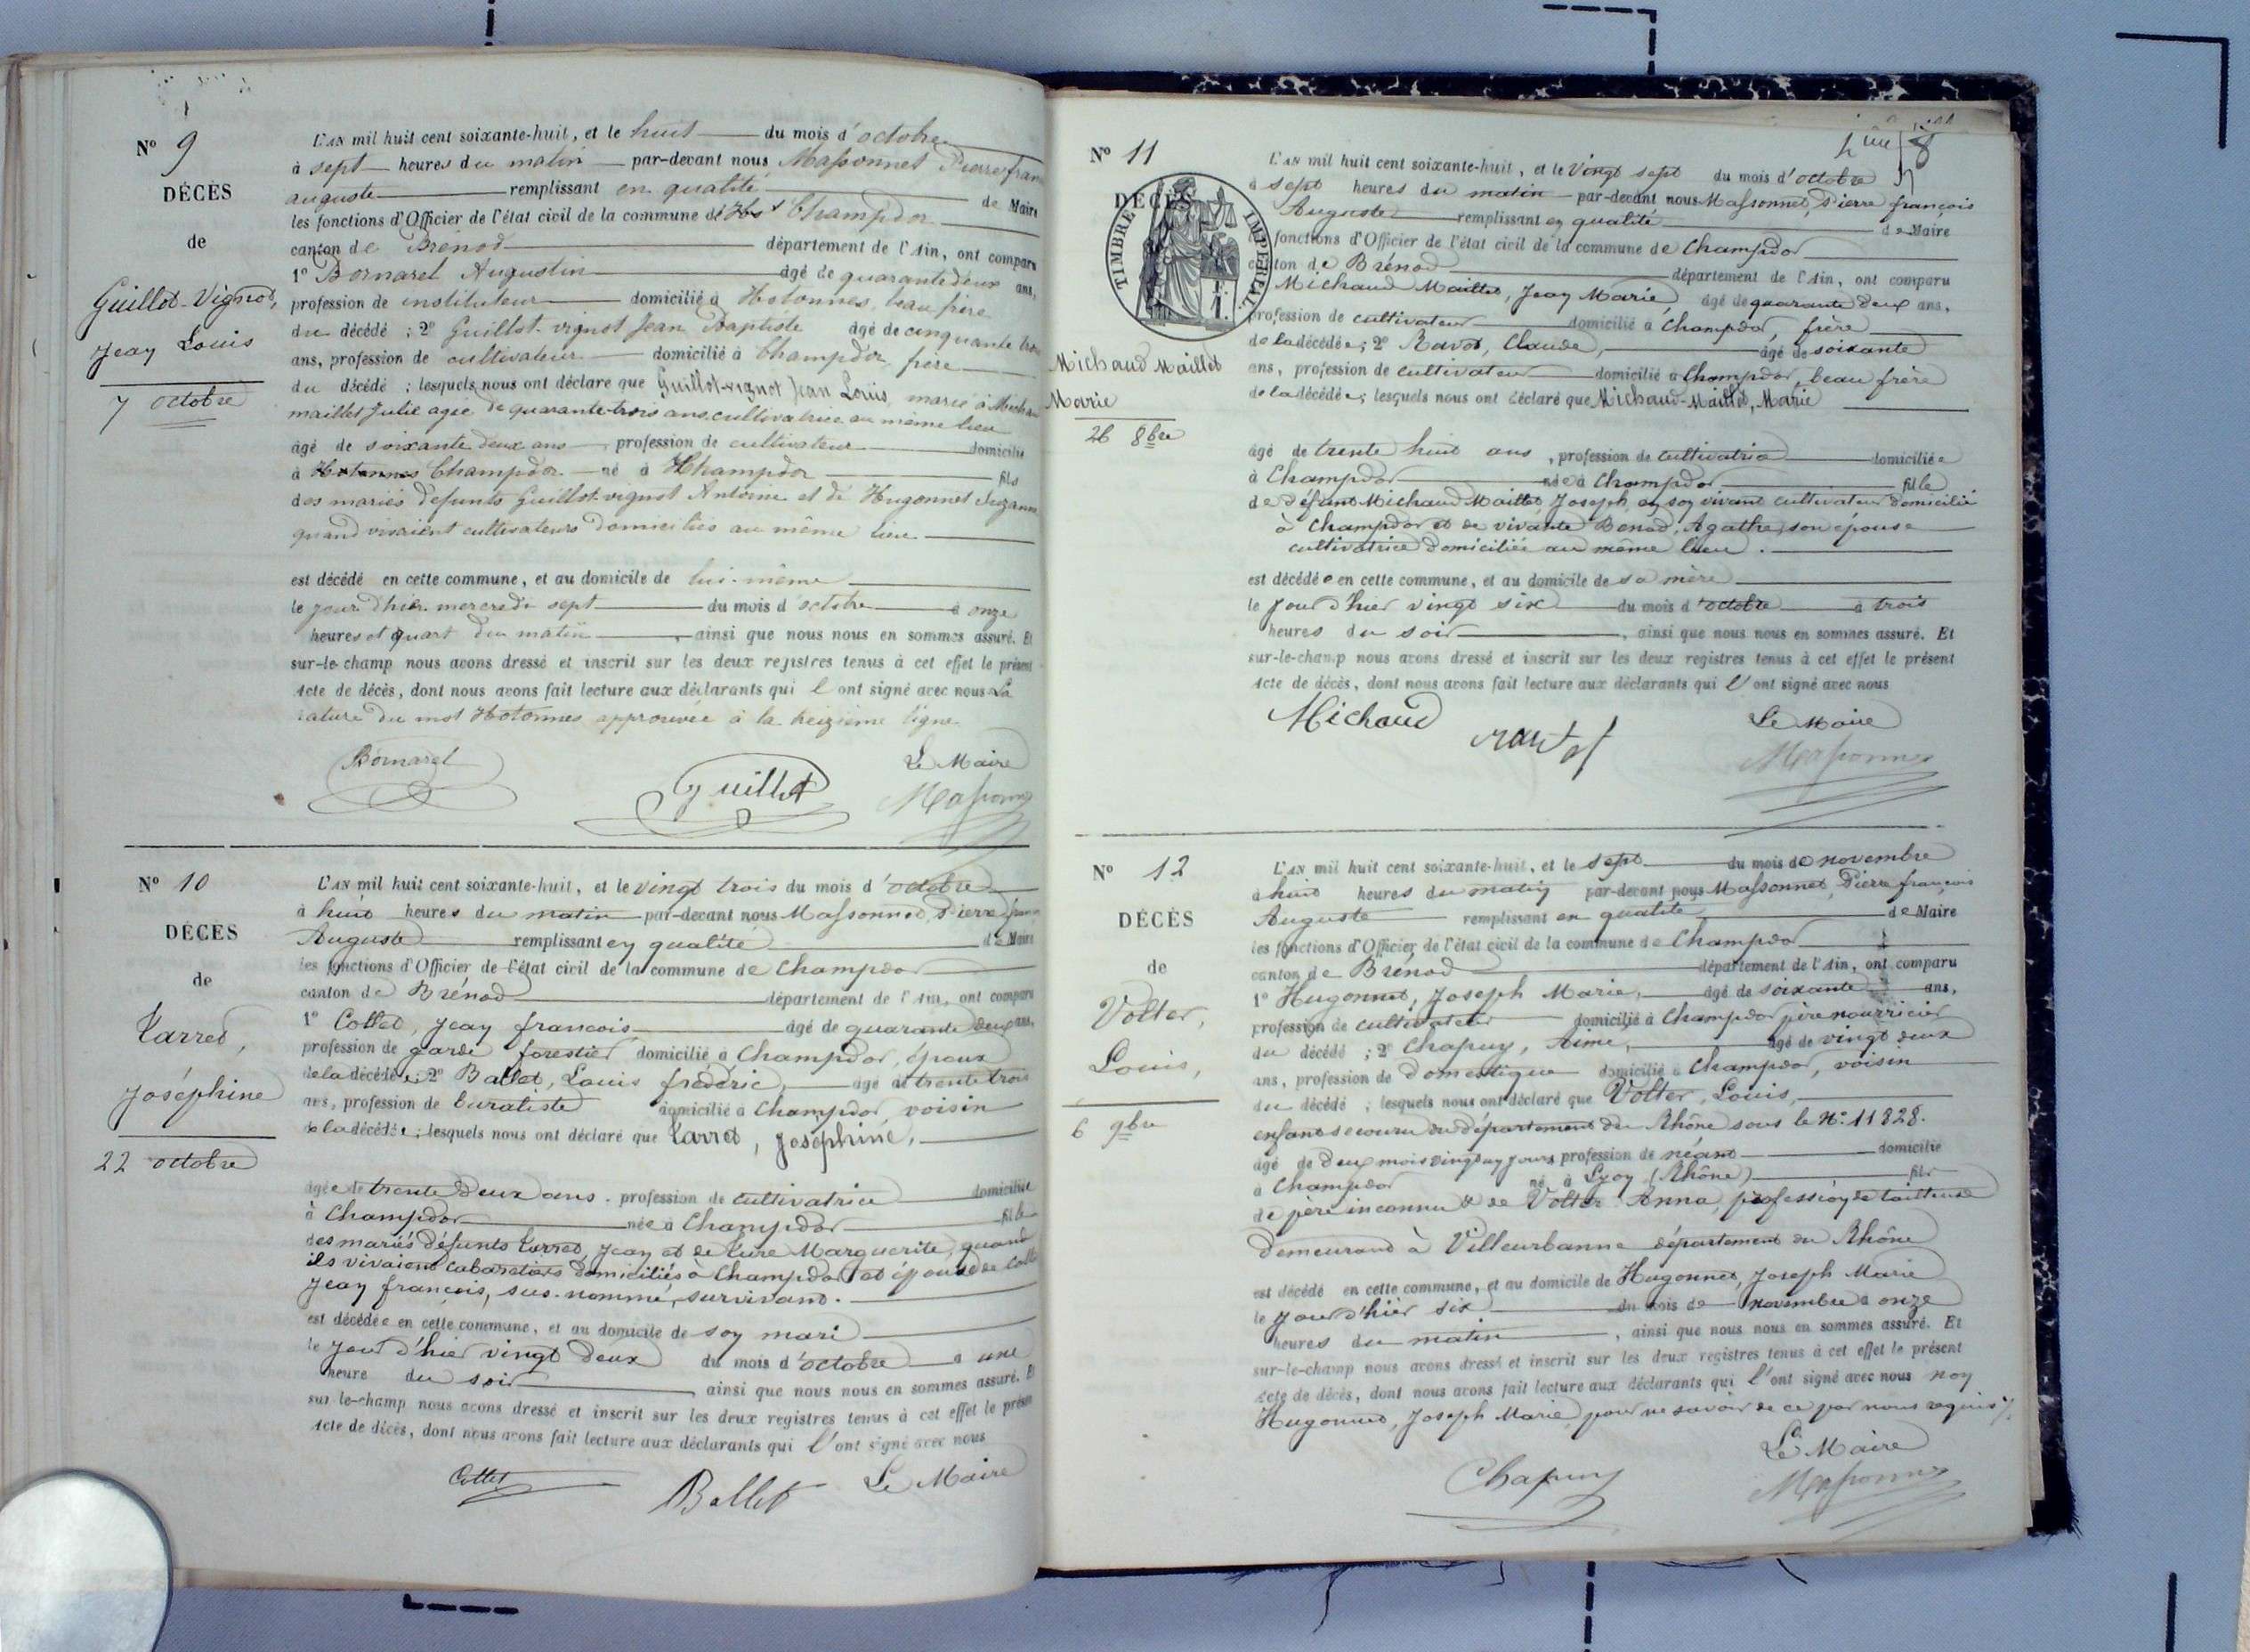 N° 9
DÉCÈS
de
Guillot-Vignot,
Jean Louis
7 octobre
L'AN mil huit cent soixante-huit, et le huit du mois d'octobre
à sept heures du matin par-devant nous Massonnet Pierre fran
auguste remplissant en qualité de Maire
les fonctions d'Officier de l'état civil de la commune de Champdor
canton de Brénod département de l'Ain, ont comparu
1° Bornarel Augustin âgé de quarante deux ans,
profession de instituteur domicilié à Hotonnes, beau frère
du décédé ; 2° Guillot-vignot Jean Baptiste âgé de cinquante trois
ans, profession de cultivateur domicilié à Champdor, frère
du décédé ; lesquels nous ont déclaré que Guillot-vignot Jean Louis, marié à Michau
maillet Julie agée de quarante-trois ans cultivatrice au même lieu
âgé de soixante deux ans, profession de cultivateur domicilié
à Hotonnes Champdor né à Champdor fils
des mariés défunts Guillot-vignot Antoine et de Hugonnet Suzanne
quand vivaient cultivateurs domiciliés au même lieu
est décédé en cette commune, et au domicile de lui-même
le jour d'hier mercredi sept du mois d'octobre à onze
heures et quart du matin, ainsi que nous nous en sommes assuré. Et
sur-le-champ nous avons dressé et inscrit sur les deux registres tenus à cet effet le présent
Acte de décès, dont nous avons fait lecture aux déclarants qui l'ont signé avec nous La
rature du mot Hotonnes approuvée à la treizième ligne
Bornarel Guillot Le Maire
Massonnet
N° 10
DÉCÈS
de
Carret,
Joséphine
22 octobre
L'AN mil huit cent soixante-huit, et le vingt trois du mois d'octobre
à huit heures du matin par-devant nous Massonnet, Pierre franç
Auguste remplissant en qualité de Maire
les fonctions d'Officier de l'état civil de la commune de Champdor
canton de Brénod département de l'Ain, ont comparu
1° Collet, Jean françois, âgé de quarante deux ans,
profession de garde forestier domicilié à Champdor, époux
de la décédée ; 2° Ballet, Louis frédéric, âgé de trente trois
ans, profession de buraliste domicilié à Champdor, voisin
de la décédée ; lesquels nous ont déclaré que Carret, Joséphine,
âgée de trente deux ans, profession de cultivatrice domiciliée
à Champdor née à Champdor fille
des mariés défunts Carret, Jean et de Cure Marguerite, quand
ils vivaient cabaretiers domiciliés à Champdor et épouse de Collet
Jean françois, sus-nommé, survivant.
est décédée en cette commune, et au domicile de son mari
le jour d'hier vingt deux du mois d'octobre à une
heure du soir, ainsi que nous nous en sommes assuré. Et
sur le-champ nous avons dressé et inscrit sur les deux registres tenus à cet effet le présent
Acte de décès, dont nous avons fait lecture aux déclarants qui l'ont signé avec nous
Collet Ballet Le Maire
N° 11
DÉCÈS
TIMBRE IMPÉRIAL
Michaud Maillet
Marie
26 8bre
L'AN mil huit cent soixante-huit, et le vingt sept du mois d'octobre
à sept heures du matin par-devant nous Massonnet, Pierre françois
Auguste remplissant en qualité de Maire
fonctions d'Officier de l'état civil de la commune de Champdor
canton de Brénod département de l'Ain, ont comparu
Michaud Maillet, Jean Marie, âgé de quarante deux ans,
profession de cultivateur domicilié à Champdor, frère
de la décédée ; 2° Ravot, Claude, âgé de soixante
ans, profession de cultivateur domicilié à Champdor, beau frère
de la décédée ; lesquels nous ont déclaré que Michaud-Maillet, Marie
âgé de trente huit ans, profession de cultivatrice domiciliée
à Champdor née à Champdor fille
de défunt Michaud Maillet, Joseph en son vivant cultivateur domicilié
à Champdor et de vivante Benod, Agathe, son épouse
cultivatrice domiciliée au même lieu.
est décédée en cette commune, et au domicile de sa mère
le jour d'hier vingt six du mois d'octobre à trois
heures du soir, ainsi que nous nous en sommes assuré. Et
sur-le-champ nous avons dressé et inscrit sur les deux registres tenus à cet effet le présent
Acte de décès, dont nous avons fait lecture aux déclarants qui l'ont signé avec nous
Michaud Le Maire
Massonnet
N° 12
DÉCÈS
de
Volter,
Louis,
6 9bre
L'AN mil huit cent soixante-huit, et le sept du mois de novembre
à huit heures du matin par-devant nous Massonnet, Pierre françois
Auguste remplissant en qualité de Maire
les fonctions d'Officier de l'état civil de la commune de Champdor
canton de Brénod département de l'Ain, ont comparu
1° Hugonnet, Joseph Marie, âgé de soixante ans,
profession de cultivateur domicilié à Champdor père nourricier
du décédé ; 2° Chapuy, Aimé, âgé de vingt deux
ans, profession de domestique domicilié à Champdor, voisin
du décédé ; lesquels nous ont déclaré que Volter, Louis,
enfant secouru du département du Rhône sous le N° 11828.
âgé de deux mois vingt un jours profession de néant domicilié
à Champdor né à Lyon (Rhône) fils
de père inconnu & de Volter Anna, profession de tailleuse
demeurant à Villeurbanne département du Rhône
est décédé en cette commune, et au domicile de Hugonnet, Joseph Marie
le jour d'hier six du mois de novembre à onze
heures du matin, ainsi que nous nous en sommes assuré. Et
sur-le-champ nous avons dressé et inscrit sur les deux registres tenus à cet effet le présent
acte de décès, dont nous avons fait lecture aux déclarants qui l'ont signé avec nous non
Hugonnet, Joseph Marie, pour ne savoir de ce par nous requis
Le Maire
Chapuy Massonnet